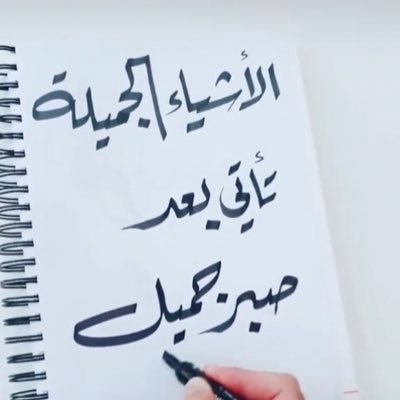 الأشياء الجميلة
تأتي بعد
صبر جميل